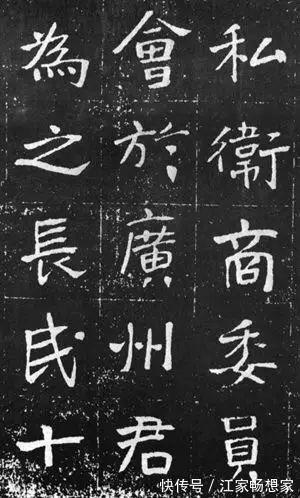 私衛商委員
會於廣州君
為之長民十
快传号/江家畅想家